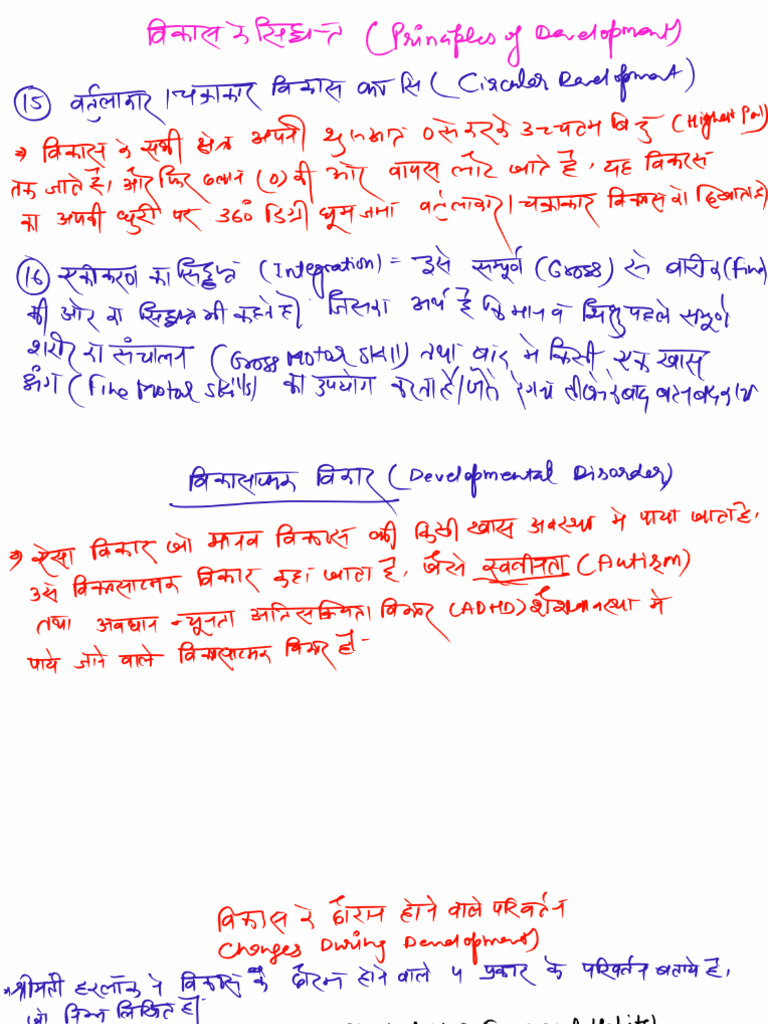 विकास के सिद्धान्त (Principles of Development)
(15) वर्तुलाकार / चक्राकार विकास का सि (Circular Development)
→ विकास के सभी क्षेत्र अपनी शुरूआत 0 से करके उच्चतम बिंदु (Highest
तक जाते है, और फिर (0) की ओर वापस लौट जाते है, यह विकास
का अपनी धुरी पर 360° डिग्री घूमजाना वर्तुलाकार / चक्राकार विकास को दिखाता है)
(16) एकीकरण का सिद्धांत (Integration) = इसे सम्पूर्ण (Gross) से बारीक (Fine)
की ओर का सिद्धान्त भी कहते है। जिसका अर्थ है कि मानव शिशु पहले सम्पूर्ण
शरीर का संचालन (Gross Motor Skill) तथा बाद मे किसी एक खास
अंग (Fine Motor Skills) का उपयोग करता है / जैसे के बाद
विकासात्मक विकार (Developmental Disorder)
→ ऐसा विकार जो मानव विकास की किसी खास अवस्था मे पाया जाता है,
उसे विकासात्मक विकार कहा जाता है, जैसे स्वलीनता (Autism)
तथा अवधान न्यूनता अतिसक्रियता विकार (ADHD) शैशवावस्था मे
पाये जाने वाले विकासात्मक विकार है।
विकास के दौरान होने वाले परिवर्तन
Changes During Development)
* श्रीमती हरलॉक ने विकास के दौरान होने वाले 4 प्रकार के परिवर्तन बताये है,
जो निम्न लिखित है।